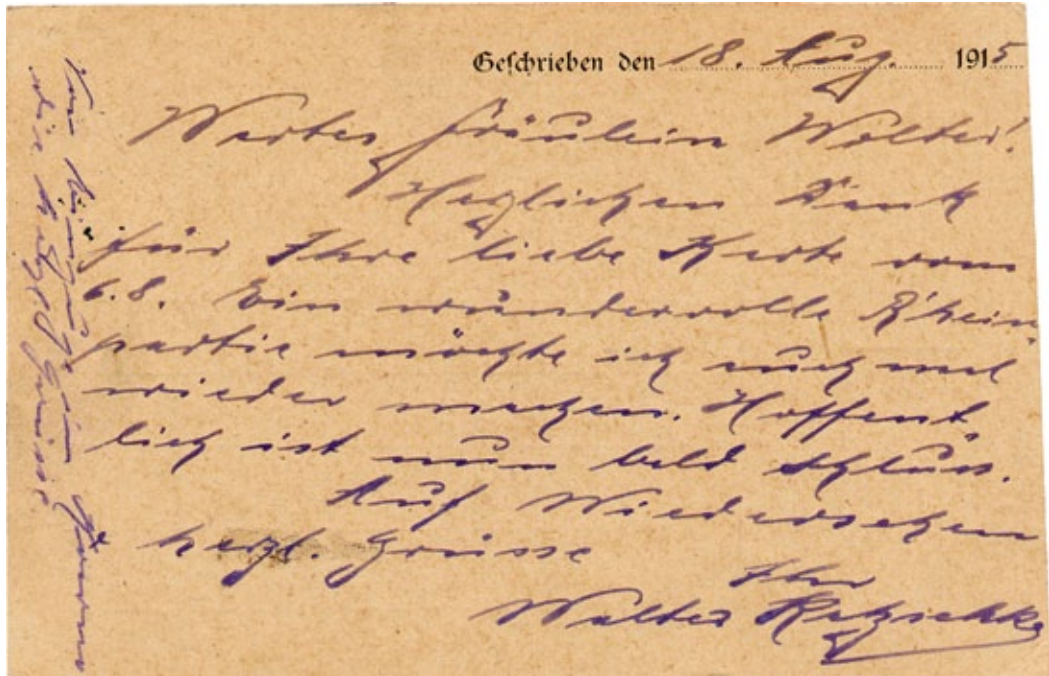 Geschrieben den 18. Aug. 1915
Wertes Fräulein Wolter!
Herzlichen Dank
für Ihre liebe Karte vom
6.8. Ein wundervolle Rhein
partie möchte ich auch mal
wieder machen. Hoffent
lich ist nun bald Schluss.
Auf Wiedersehen
herzl. Grüsse
Ihr
Walter
die herzl. Grüsse